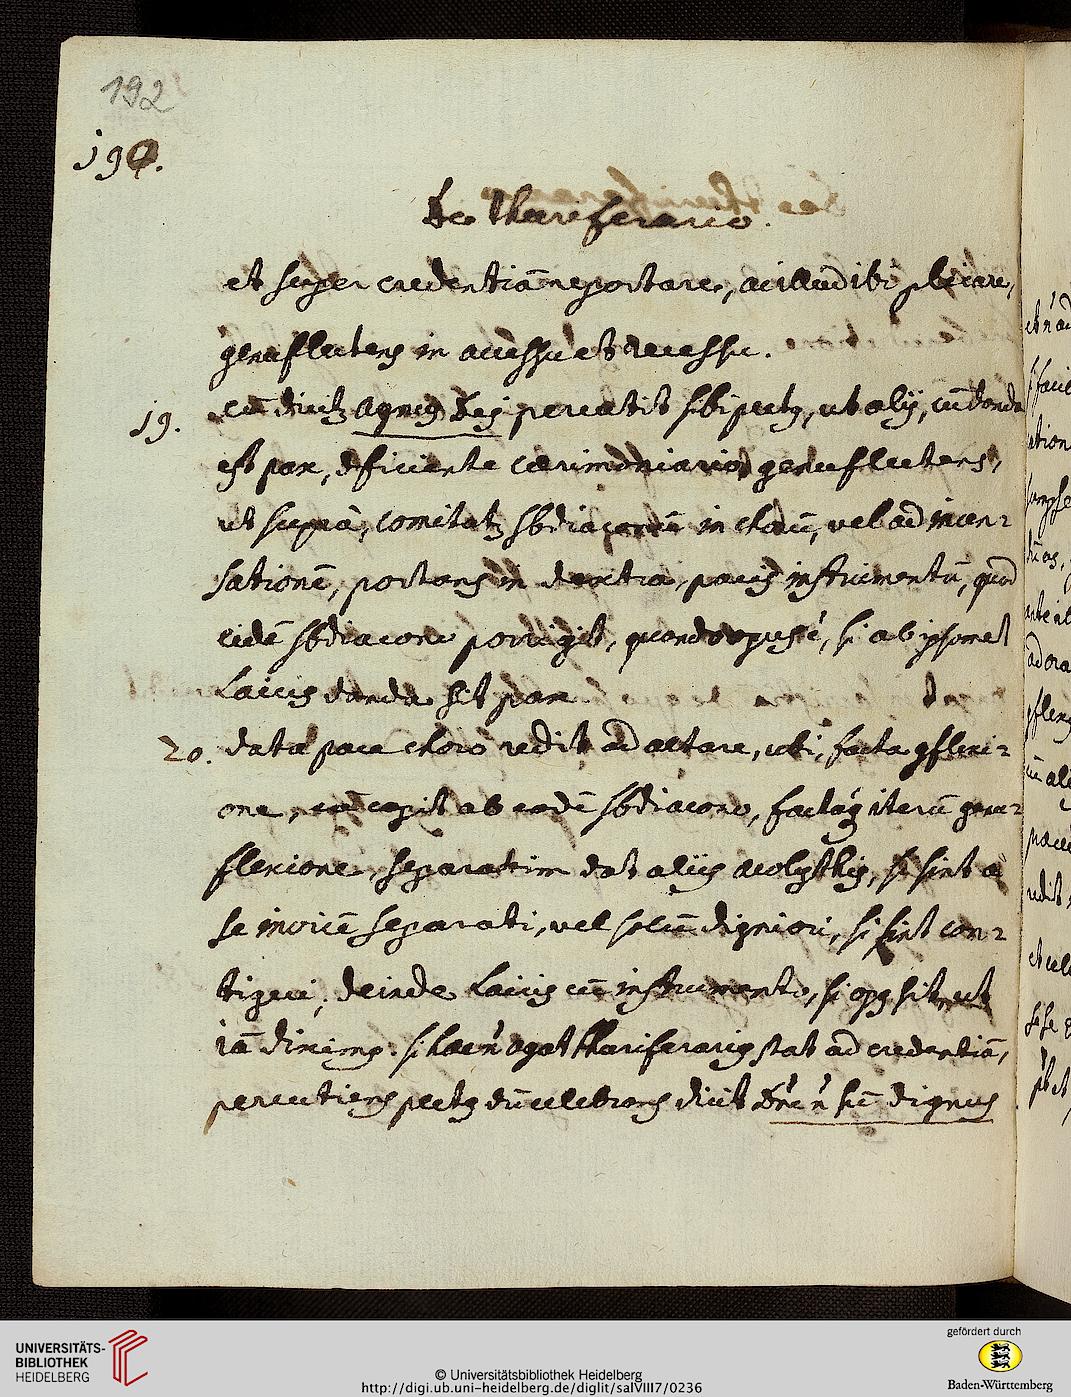 192
190.
De thuriferario.
et super credentiā reportare, ac illud ibi plicare,
genuflectens in accessu et recessu.
19. cū dicitꝫ Agnus Dei percutit sibi pectꝫ, ut alij, cū danda
est pax, deficiente cærimoniario, genuflectens,
ut supra, comitatꝫ sbdiaconū in chorū, vel ad incen-
sationē, portans in dextra pacis instrumentū, quod
eidē sbdiacono porrigit, quando opus ē, si ab ipsomet
Laicis danda sit pax.
20. data pace choro redit ad altare, ubi, facta gflexi-
one, eā capit ab eodē sbdiacono, factaqꝫ iterū genu-
flexione, separatim dat alijs acolythis, si sint a
se invicē separati, vel solū digniori, si sint con-
tigui, deinde Laicis cū instrumento, si opꝫ sit, ut
iā diximꝫ. si hæc ñ agat thuriferariꝫ stat ad credentiā,
percutiens pectꝫ dū celebrans dicit Dñe ñ sū dignus
UNIVERSITÄTS-
BIBLIOTHEK
HEIDELBERG
© Universitätsbibliothek Heidelberg
http://digi.ub.uni-heidelberg.de/diglit/salVIII7/0236
gefördert durch
Baden-Württemberg